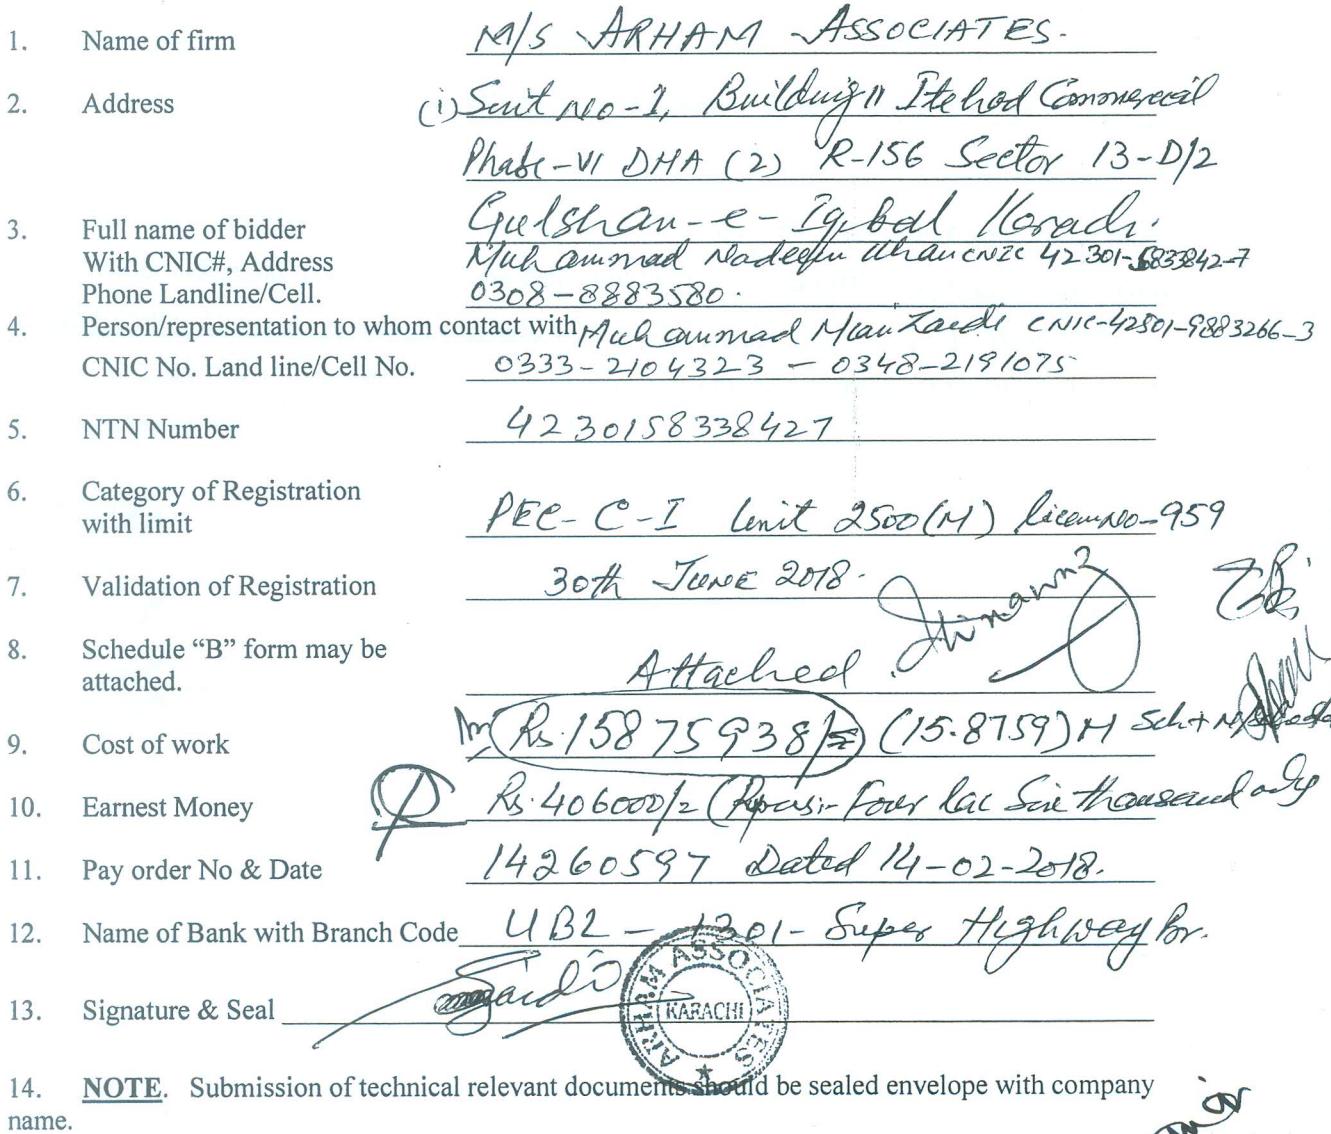 1. Name of firm M/S ARHAM ASSOCIATES.
2. Address (i) Suit No-1, Building 11 Itehad Commercial
Phase-VI DHA (2) R-156 Sector 13-D/2
Gulshan-e-Iqbal Karachi.
3. Full name of bidder
With CNIC#, Address Muhammad Nadeem Khan CNIC 42301-5833842-7
Phone Landline/Cell. 0308-8883580.
4. Person/representation to whom contact with Muhammad Mian Zaidi CNIC-42501-9883266-3
CNIC No. Land line/Cell No. 0333-2104323 - 0348-2191075
5. NTN Number 4230158338427
6. Category of Registration
with limit PEC-C-I limit 2500(M) licen No-959
7. Validation of Registration 30th JUNE 2018.
8. Schedule “B” form may be
attached. Attached
9. Cost of work Rs.15875938/= (15.8759)M Sch+
10. Earnest Money Rs.406000/= (Rupees:- Four lac Six thousand only
11. Pay order No & Date 14260597 Dated 14-02-2018.
12. Name of Bank with Branch Code UBL - 1301- Super Highway Br.
13. Signature & Seal
ARHAM ASSOCIATES
KARACHI
14. NOTE. Submission of technical relevant documents should be sealed envelope with company
name.